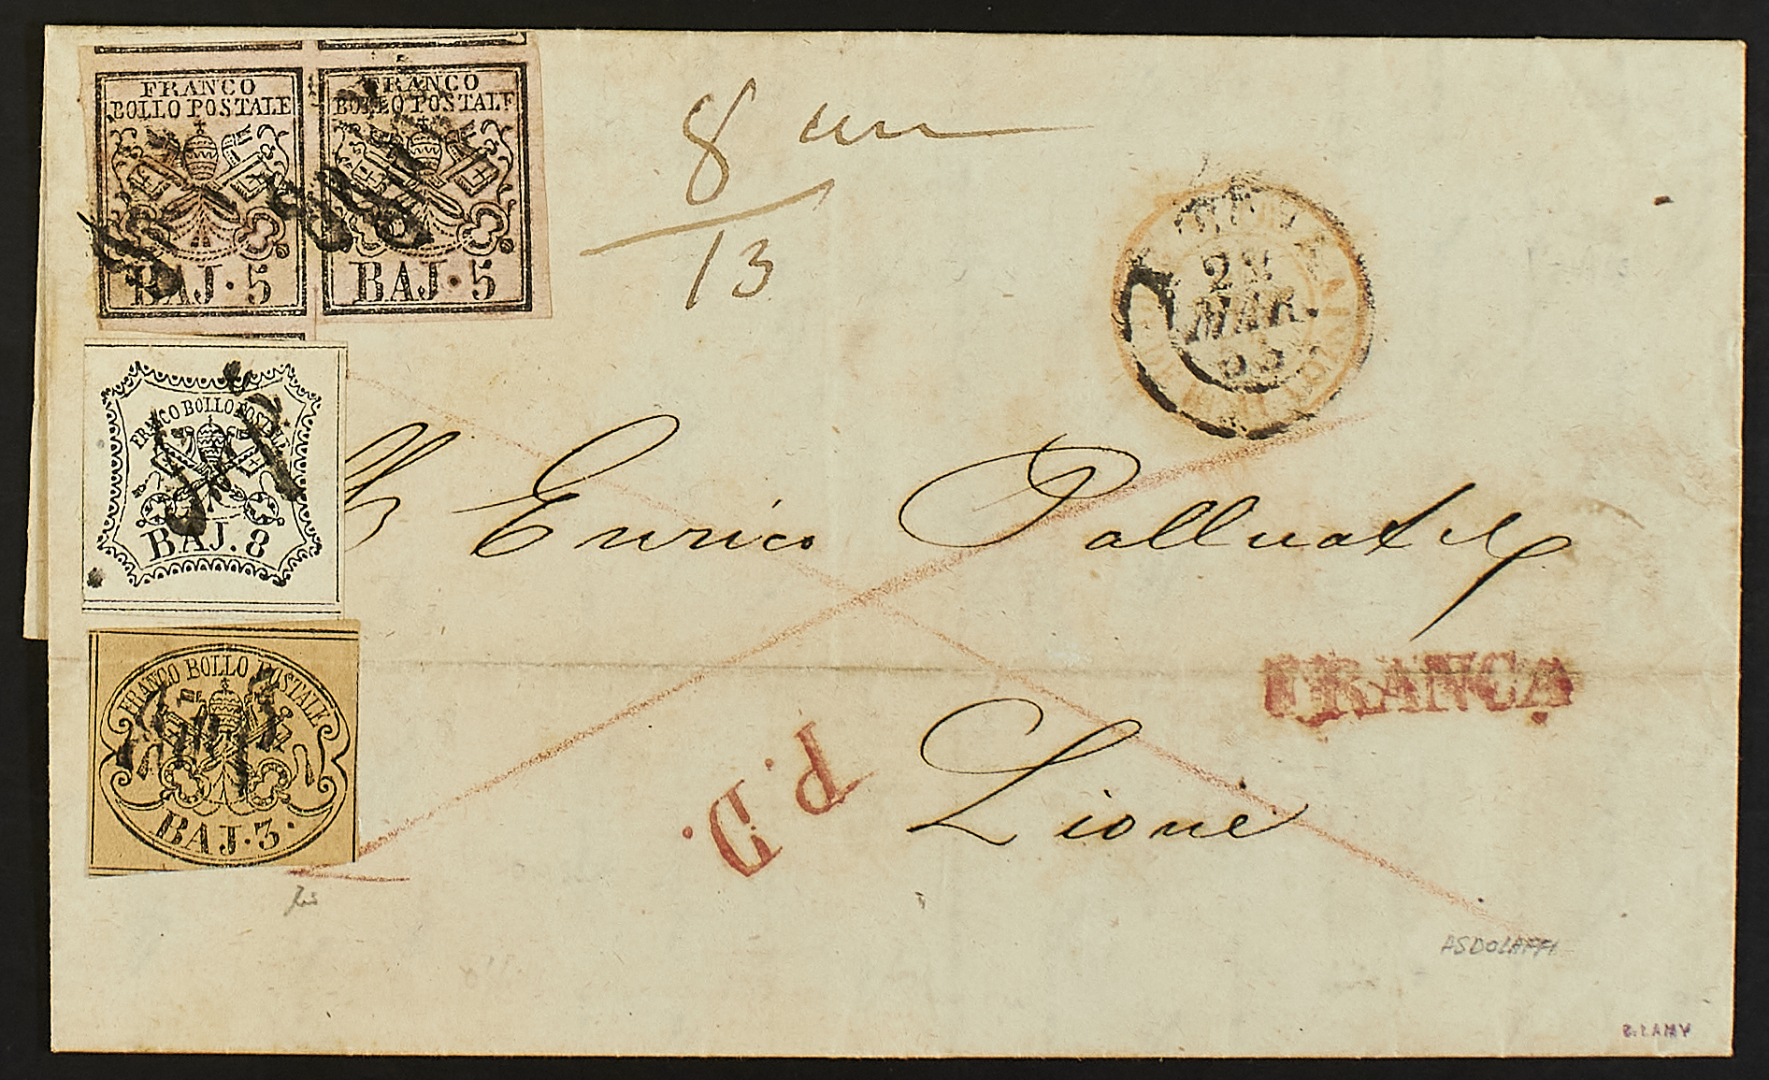 FRANCO
BOLLO POSTALE
BAJ. 5
FRANCO
BOLLO POSTALE
BAJ. 5
8
13
28
MAR.
53
FRANCO BOLLO POSTALE
BAJ. 8
Enrico Palluat
FRANCO BOLLO POSTALE
BAJ. 3.
FRANCA
P.D.
Lione
ASDOLAFFI
E. LAMY